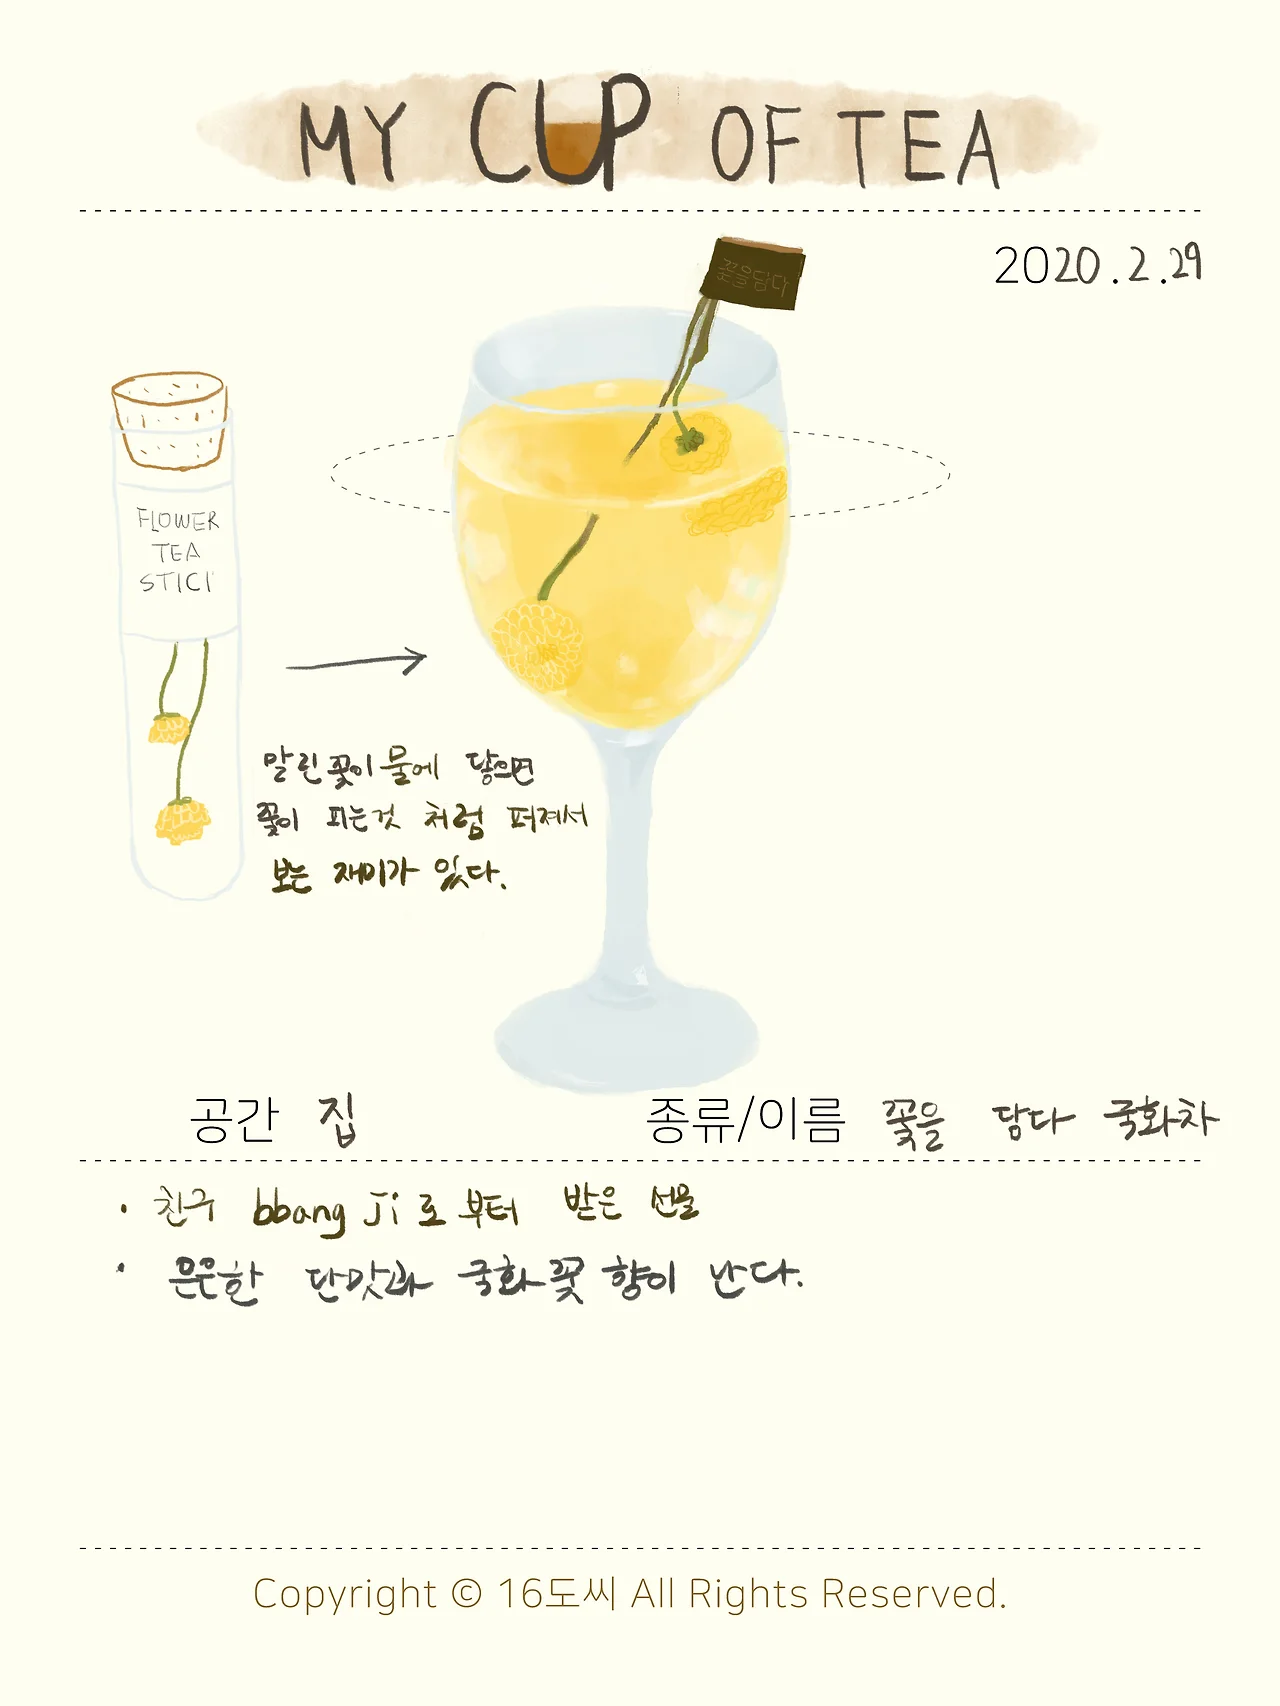 MY CUP OF TEA
2020.2.29
꽃을담다
FLOWER
TEA
STICK
말린꽃이 물에 닿으면
꽃이 피는것 처럼 퍼져서
보는 재미가 있다.
공간 집
종류/이름 꽃을 담다 국화차
· 친구 bbang Ji로 부터 받은 선물
· 은은한 단맛과 국화꽃 향이 난다.
Copyright © 16도씨 All Rights Reserved.